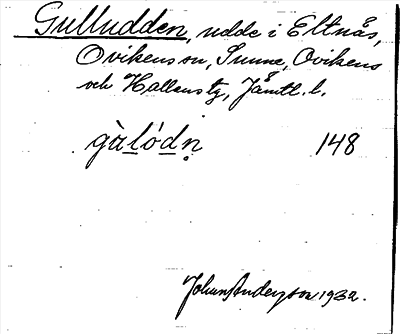 Gulludden, udde i Eltnås,
Ovikens sn, Sunne, Ovikens
och Hallens tg, Jämtl. l.
gàlódn̥ 148
Johan Anderson 1932.